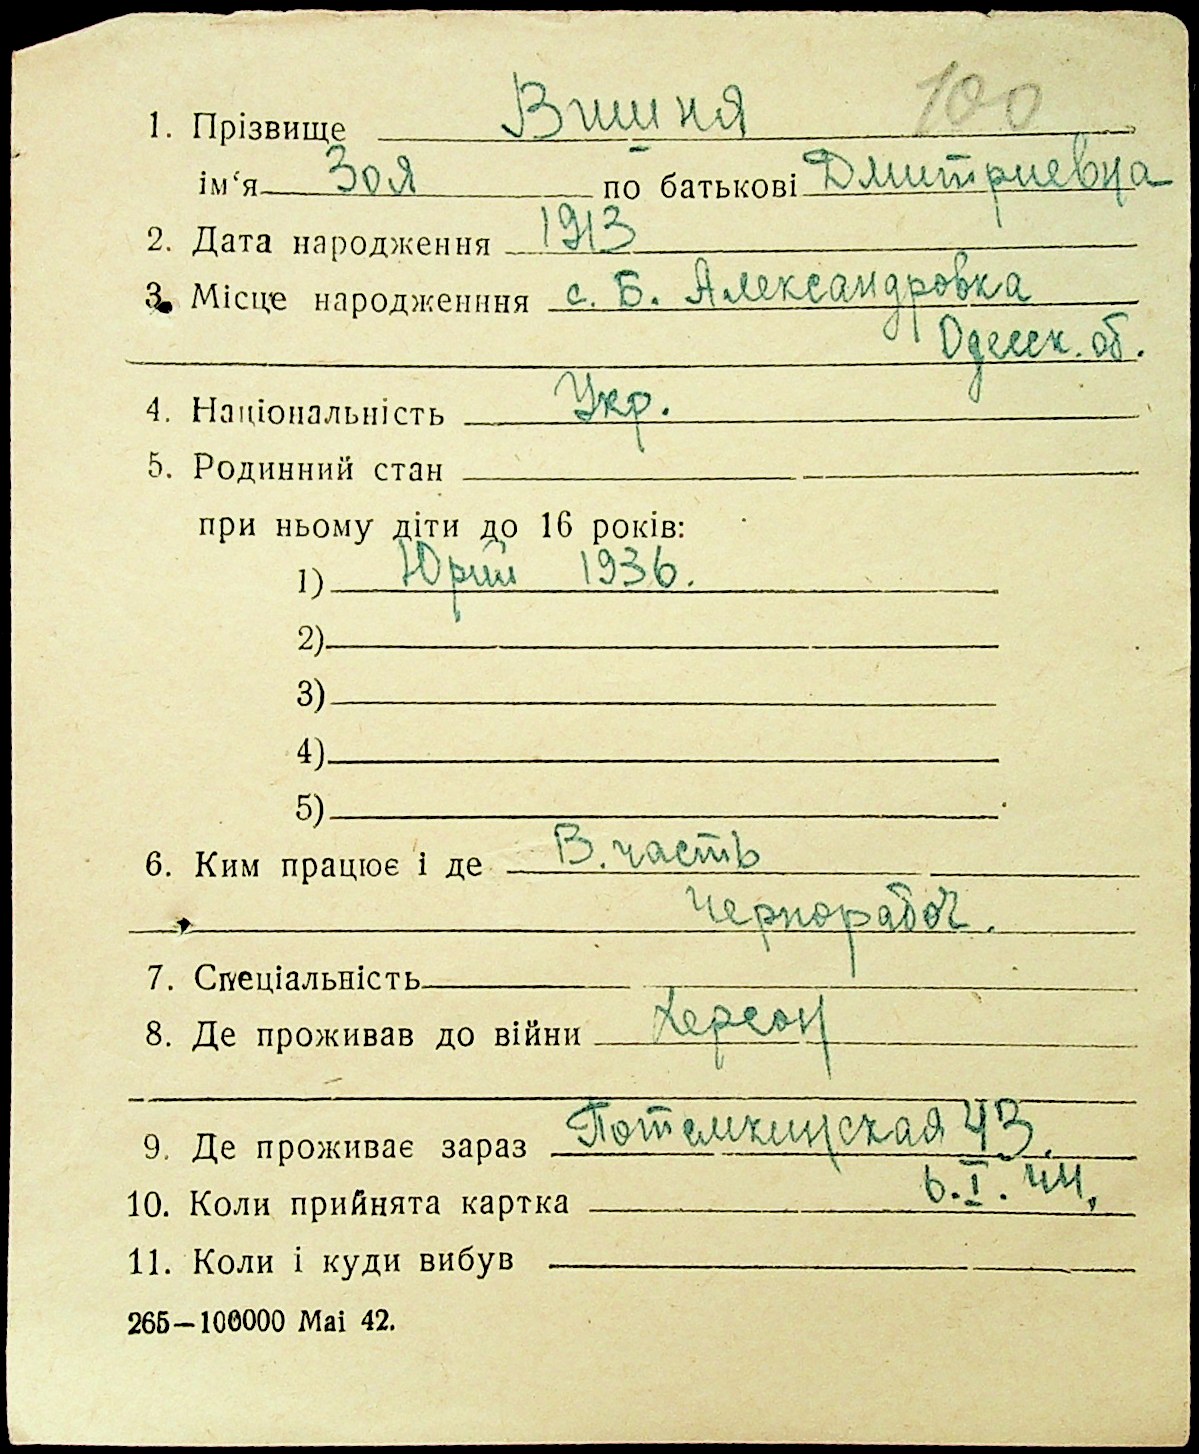 100
1. Прізвище Вишня
ім‘я Зоя по батькові Дмитриевна
2. Дата народження 1913
3. Місце народженння с. Б. Александровка
Одесск. об.
4. Національність Укр.
5. Родинний стан
при ньому діти до 16 років:
1) Юрий 1936.
2)
3)
4)
5)
6. Ким працює і де В. часть
Чернорабоч.
7. Спеціальність
8. Де проживав до війни Херсон
9. Де проживає зараз Потемкинская 43.
10. Коли прийнята картка 6. I. 44.
11. Коли і куди вибув
265—100000 Mai 42.